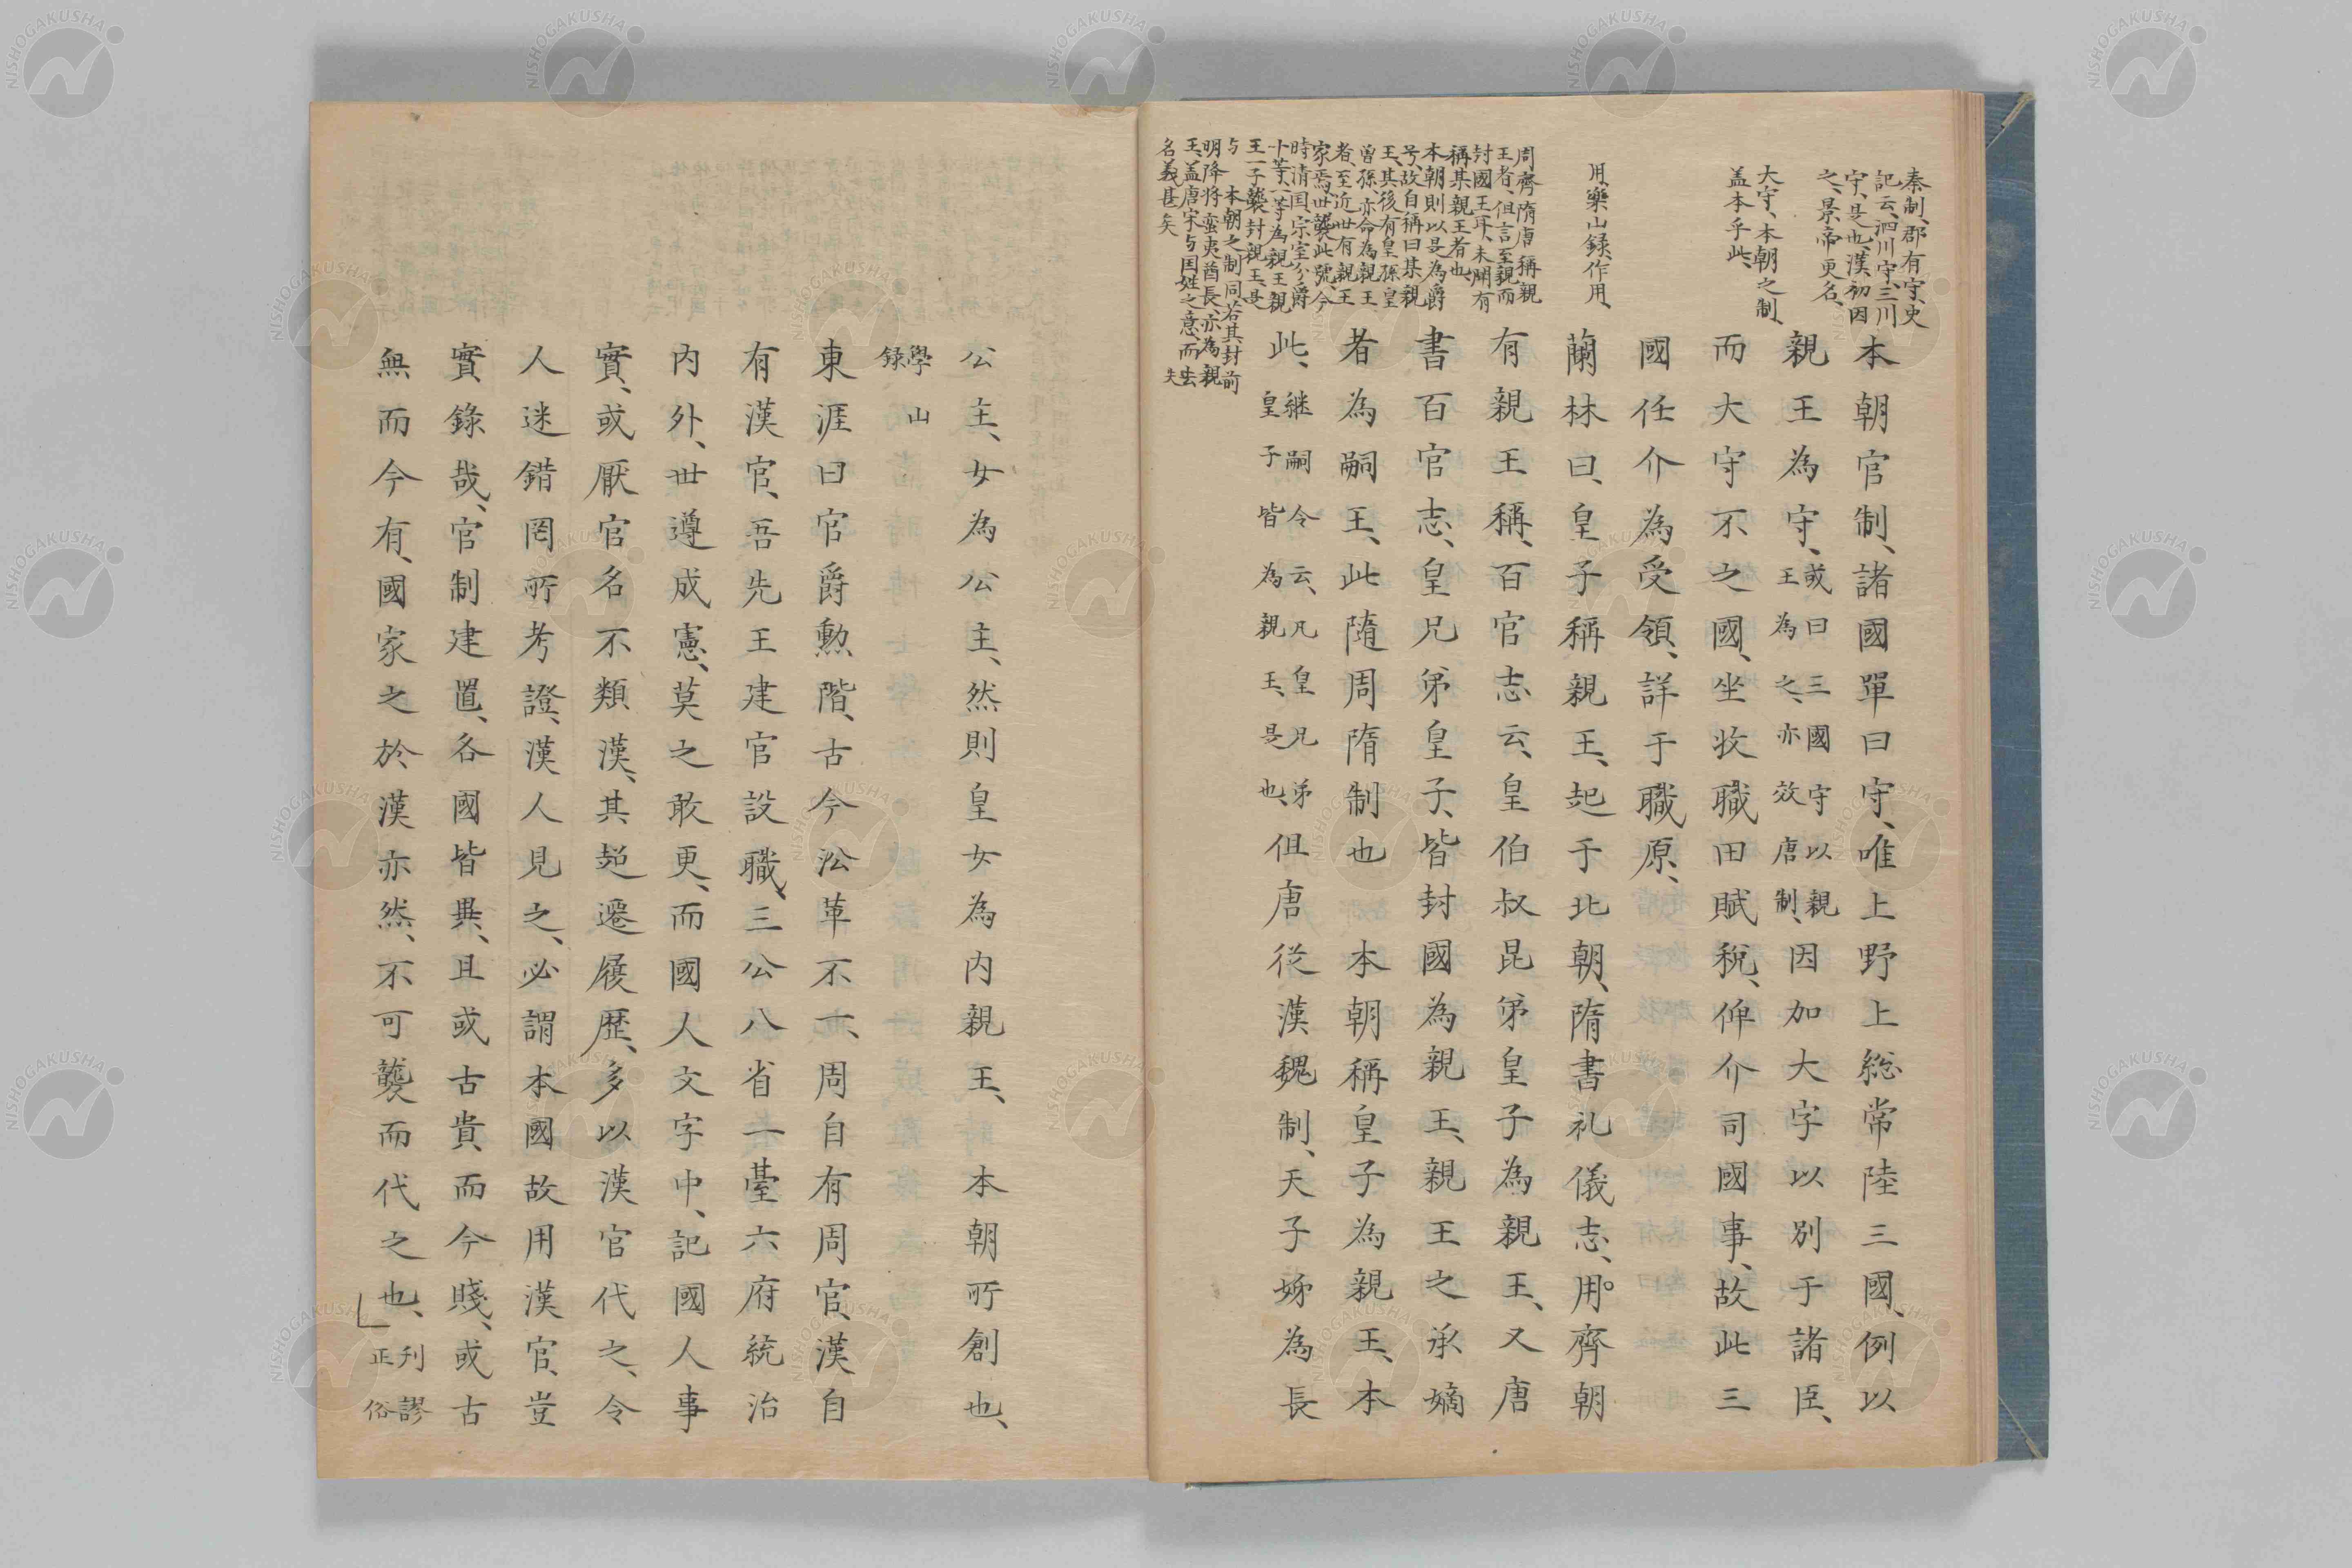 秦制、郡有守、史
記云、泗川守、三川
守、是也、漢初因
之、景帝更名、
大守、本朝之制、
盖本乎此、
用、藥山録、作用、
周齊隋唐稱親
王者、但言至親而
封國王耳、未聞有
稱某親王者也、
本朝則以是為爵
号、故自稱曰某親
王、其後有皇孫皇
曽孫、亦命為親王
者、至近世有親王
家焉、世襲此號、今
時清国宗室分爵
十等、一等為親王、親
王一子襲封親王、是
与 本朝之制同、若其封前
明降将蛮夷酋長、亦為親
王、盖唐宋与国姓之意、而去
名義甚矣 失
本朝官制、諸國單曰守、唯上野上総常陸三國、例以
親王為守、或曰三國守以親
王為之、亦效唐制、因加大字以別于諸臣、
而大守不之國、坐收職田賦稅、俾介司國事、故此三
國任介為受領、詳于職原、
蘭林曰、皇子稱親王、起于北朝、隋書礼儀志、用齊朝
有親王稱、百官志云、皇伯叔昆弟皇子為親王、又唐
書百官志、皇兄弟皇子、皆封國為親王、親王之承嫡
者為嗣王、此隨周隋制也 本朝稱皇子為親王、本
此、継嗣令云、凡皇兄弟
皇子皆為親王、是也、但唐従漢魏制、天子姊為長
公主、女為公主、然則皇女為内親王、 本朝所創也、
學山
録
東涯曰官爵勲階、古今沿革不一、周自有周官、漢自
有漢官、吾先王建官設職、三公八省一臺六府統治
内外、世遵成憲、莫之敢更、而國人文字中、記國人事
實、或厭官名不類漢、其超遷履歴、多以漢官代之、令
人迷錯罔所考證、漢人見之、必謂本國故用漢官、豈
實錄哉、官制建置、各國皆異、且或古貴而今賤、或古
無而今有、國家之於漢亦然、不可襲而代之也、刊謬
正俗
NISHOGAKUSHA